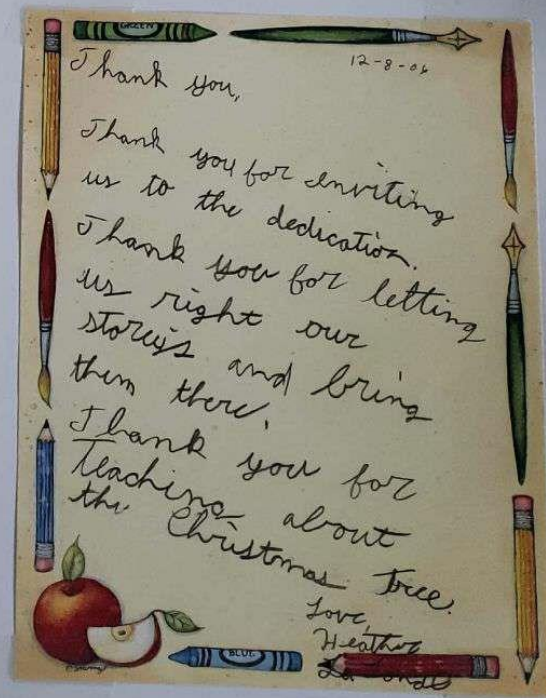 GREEN
12-8-06
Thank you,
Thank you for inviting
us to the dedication.
Thank you for letting
us right our
storeys and bring
them there,
Thank you for
teaching about
the Christmas tree.
Love,
Heather
BLUE